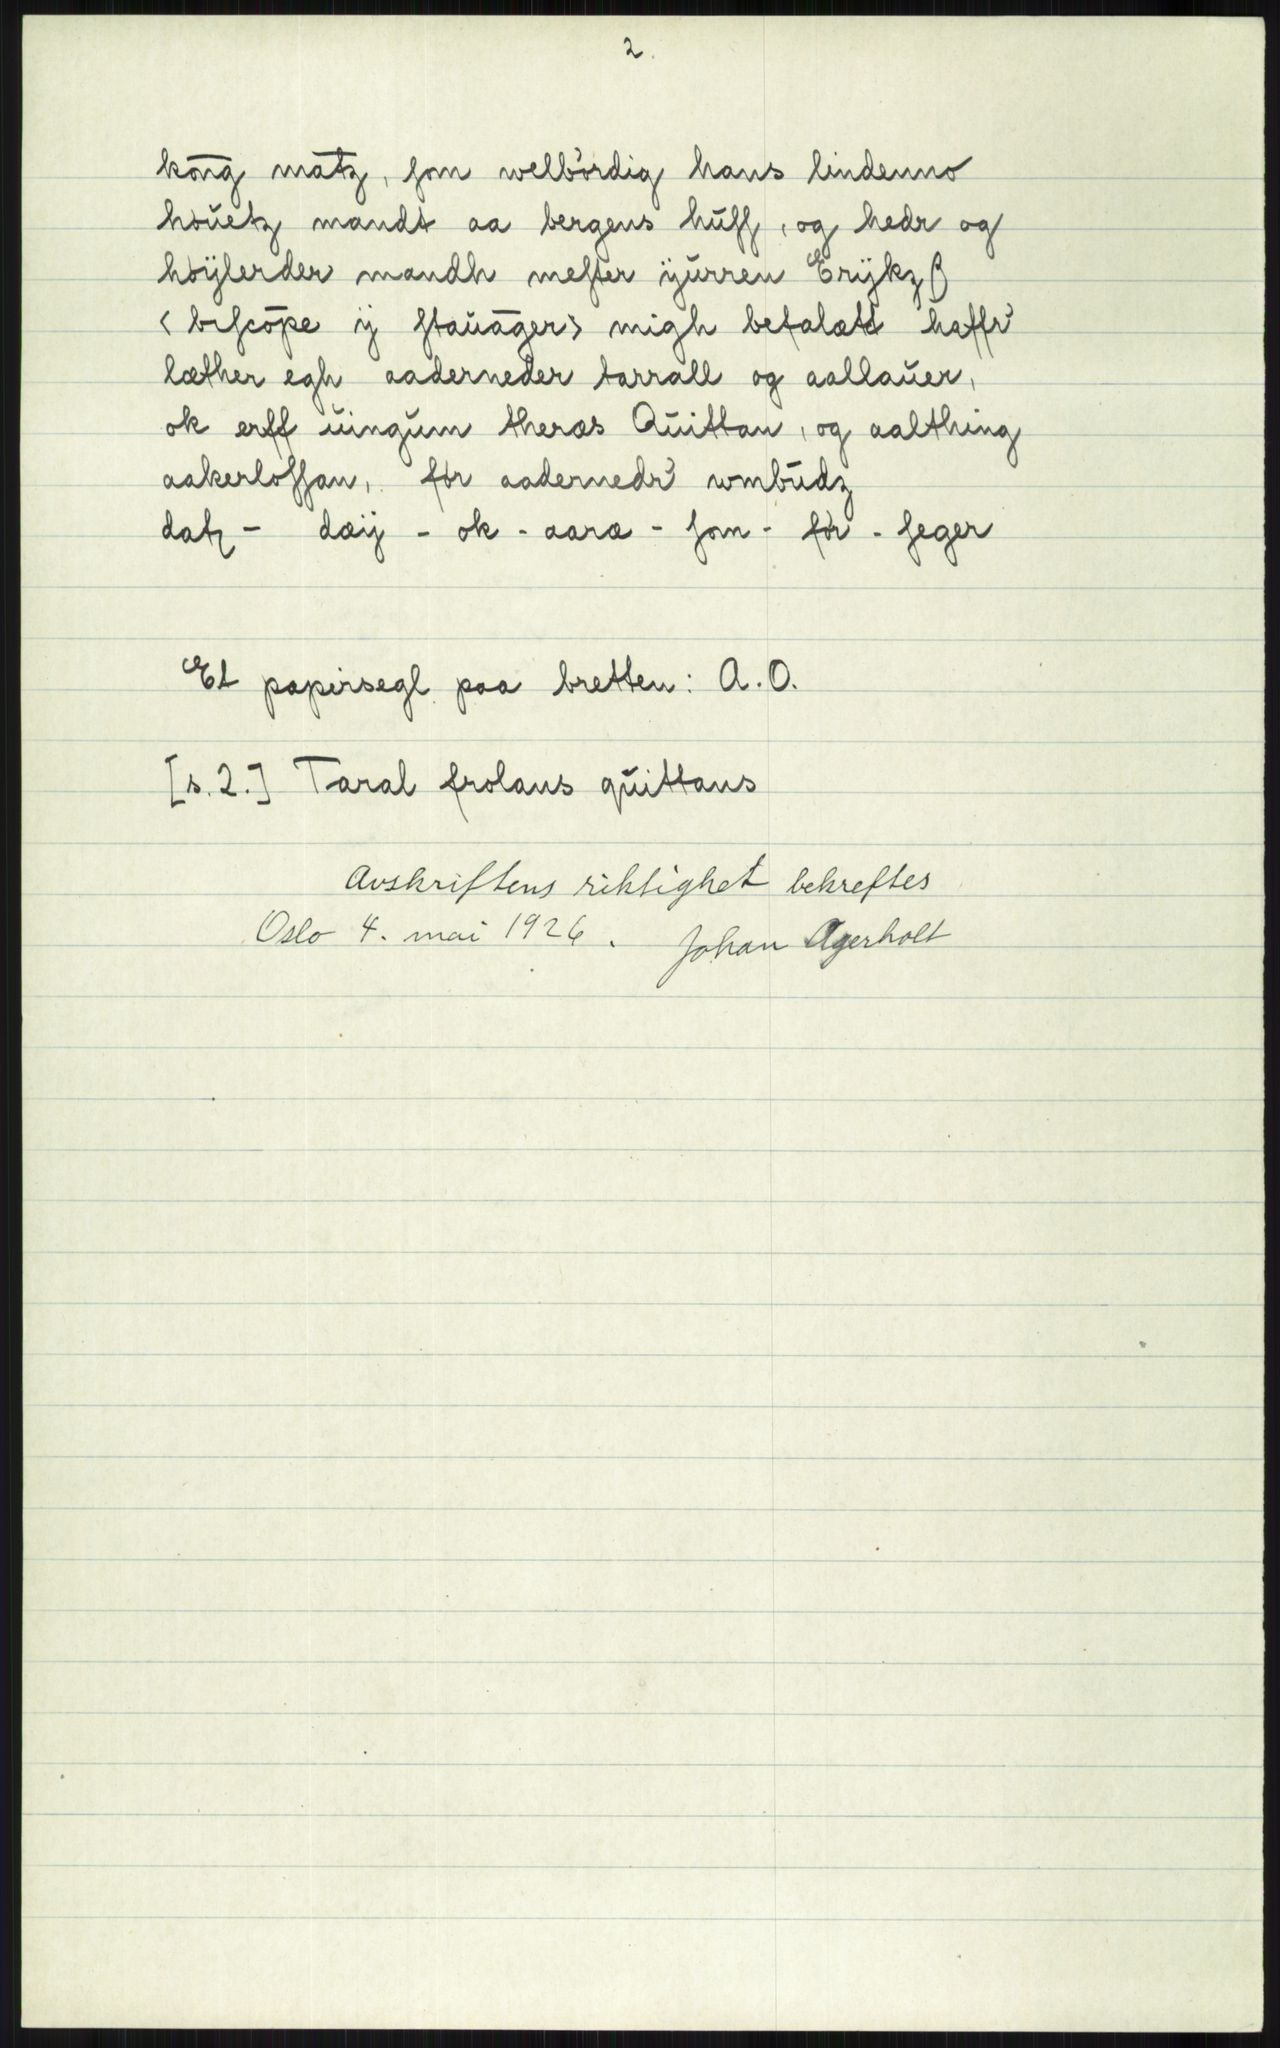 2.
kōng mātz, som welbördig hans lindenno
höuetz mandt aa bergens huss, og hedr og
höÿlerder mandh mester ÿurren Erÿkzß
< biscōpe ÿ stauāger> migh betalætt haffr'
læther egh aaderneder tarrall og aallauer,
ok erff uingum theræs Quittan, og aalthing
aakerlossan, før aadernedr' wmbūdz
datz - dæÿ - ok - aara - som - før - seger
Et papirsegl paa bretten: A.O.
[s.2.] Taral frolans quittans
Avskriftens riktighet bekreftes
Oslo 4. mai 1926. Johan Agerholt